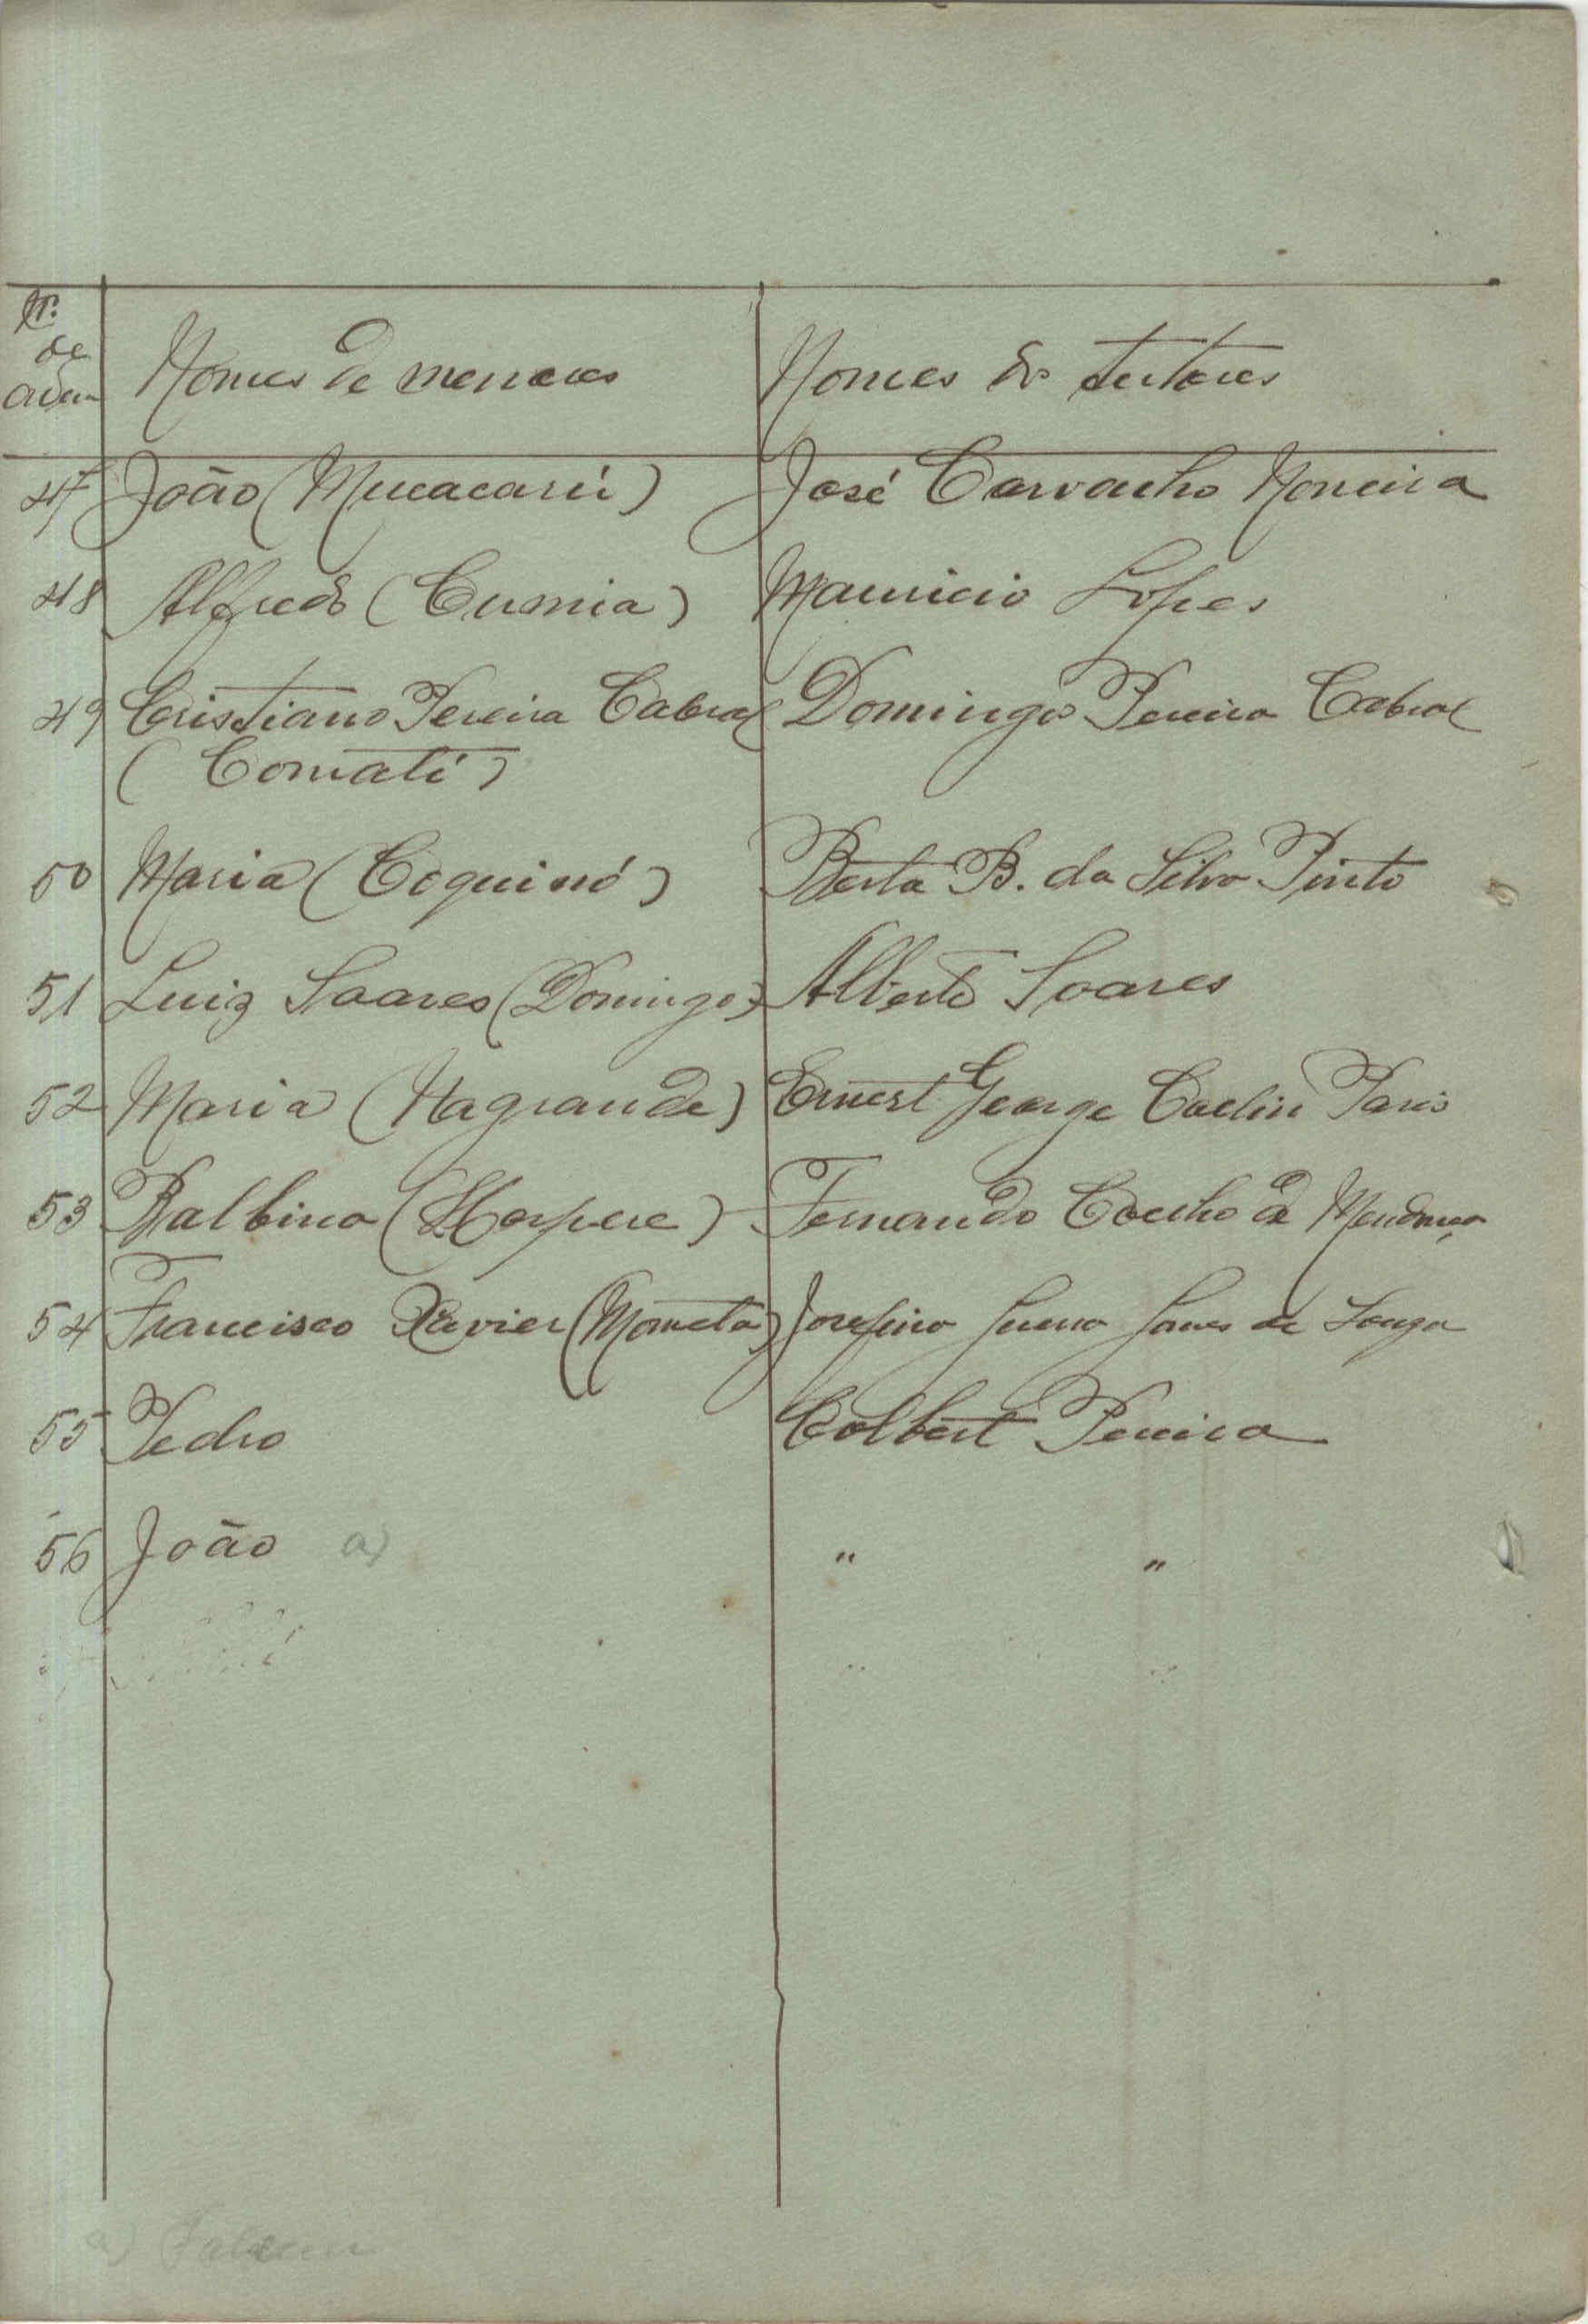 Nº de ordem Nomes de menores Nomes dos tutores
47 João (Mucacarú) José Carvalho Moreira
48 Alfredo (Cumia) Mauricio Lopes
49 Cristiano Pereira Cabral Domingos Pereira Cabral
(Comati)
50 Maria (Coquinó) Berta B. da Silva Pinto
51 Luiz Soares (Domingo) Alberto Soares
52 Maria (Nagrande) Ernest George Coelin Paris
53 Balbina Fernando Coelho de Mendonça
54 Francisco Xavier (Mometa) Josefina de Souza
55 Pedro Colbert Pereira
56 João a) " "
a)